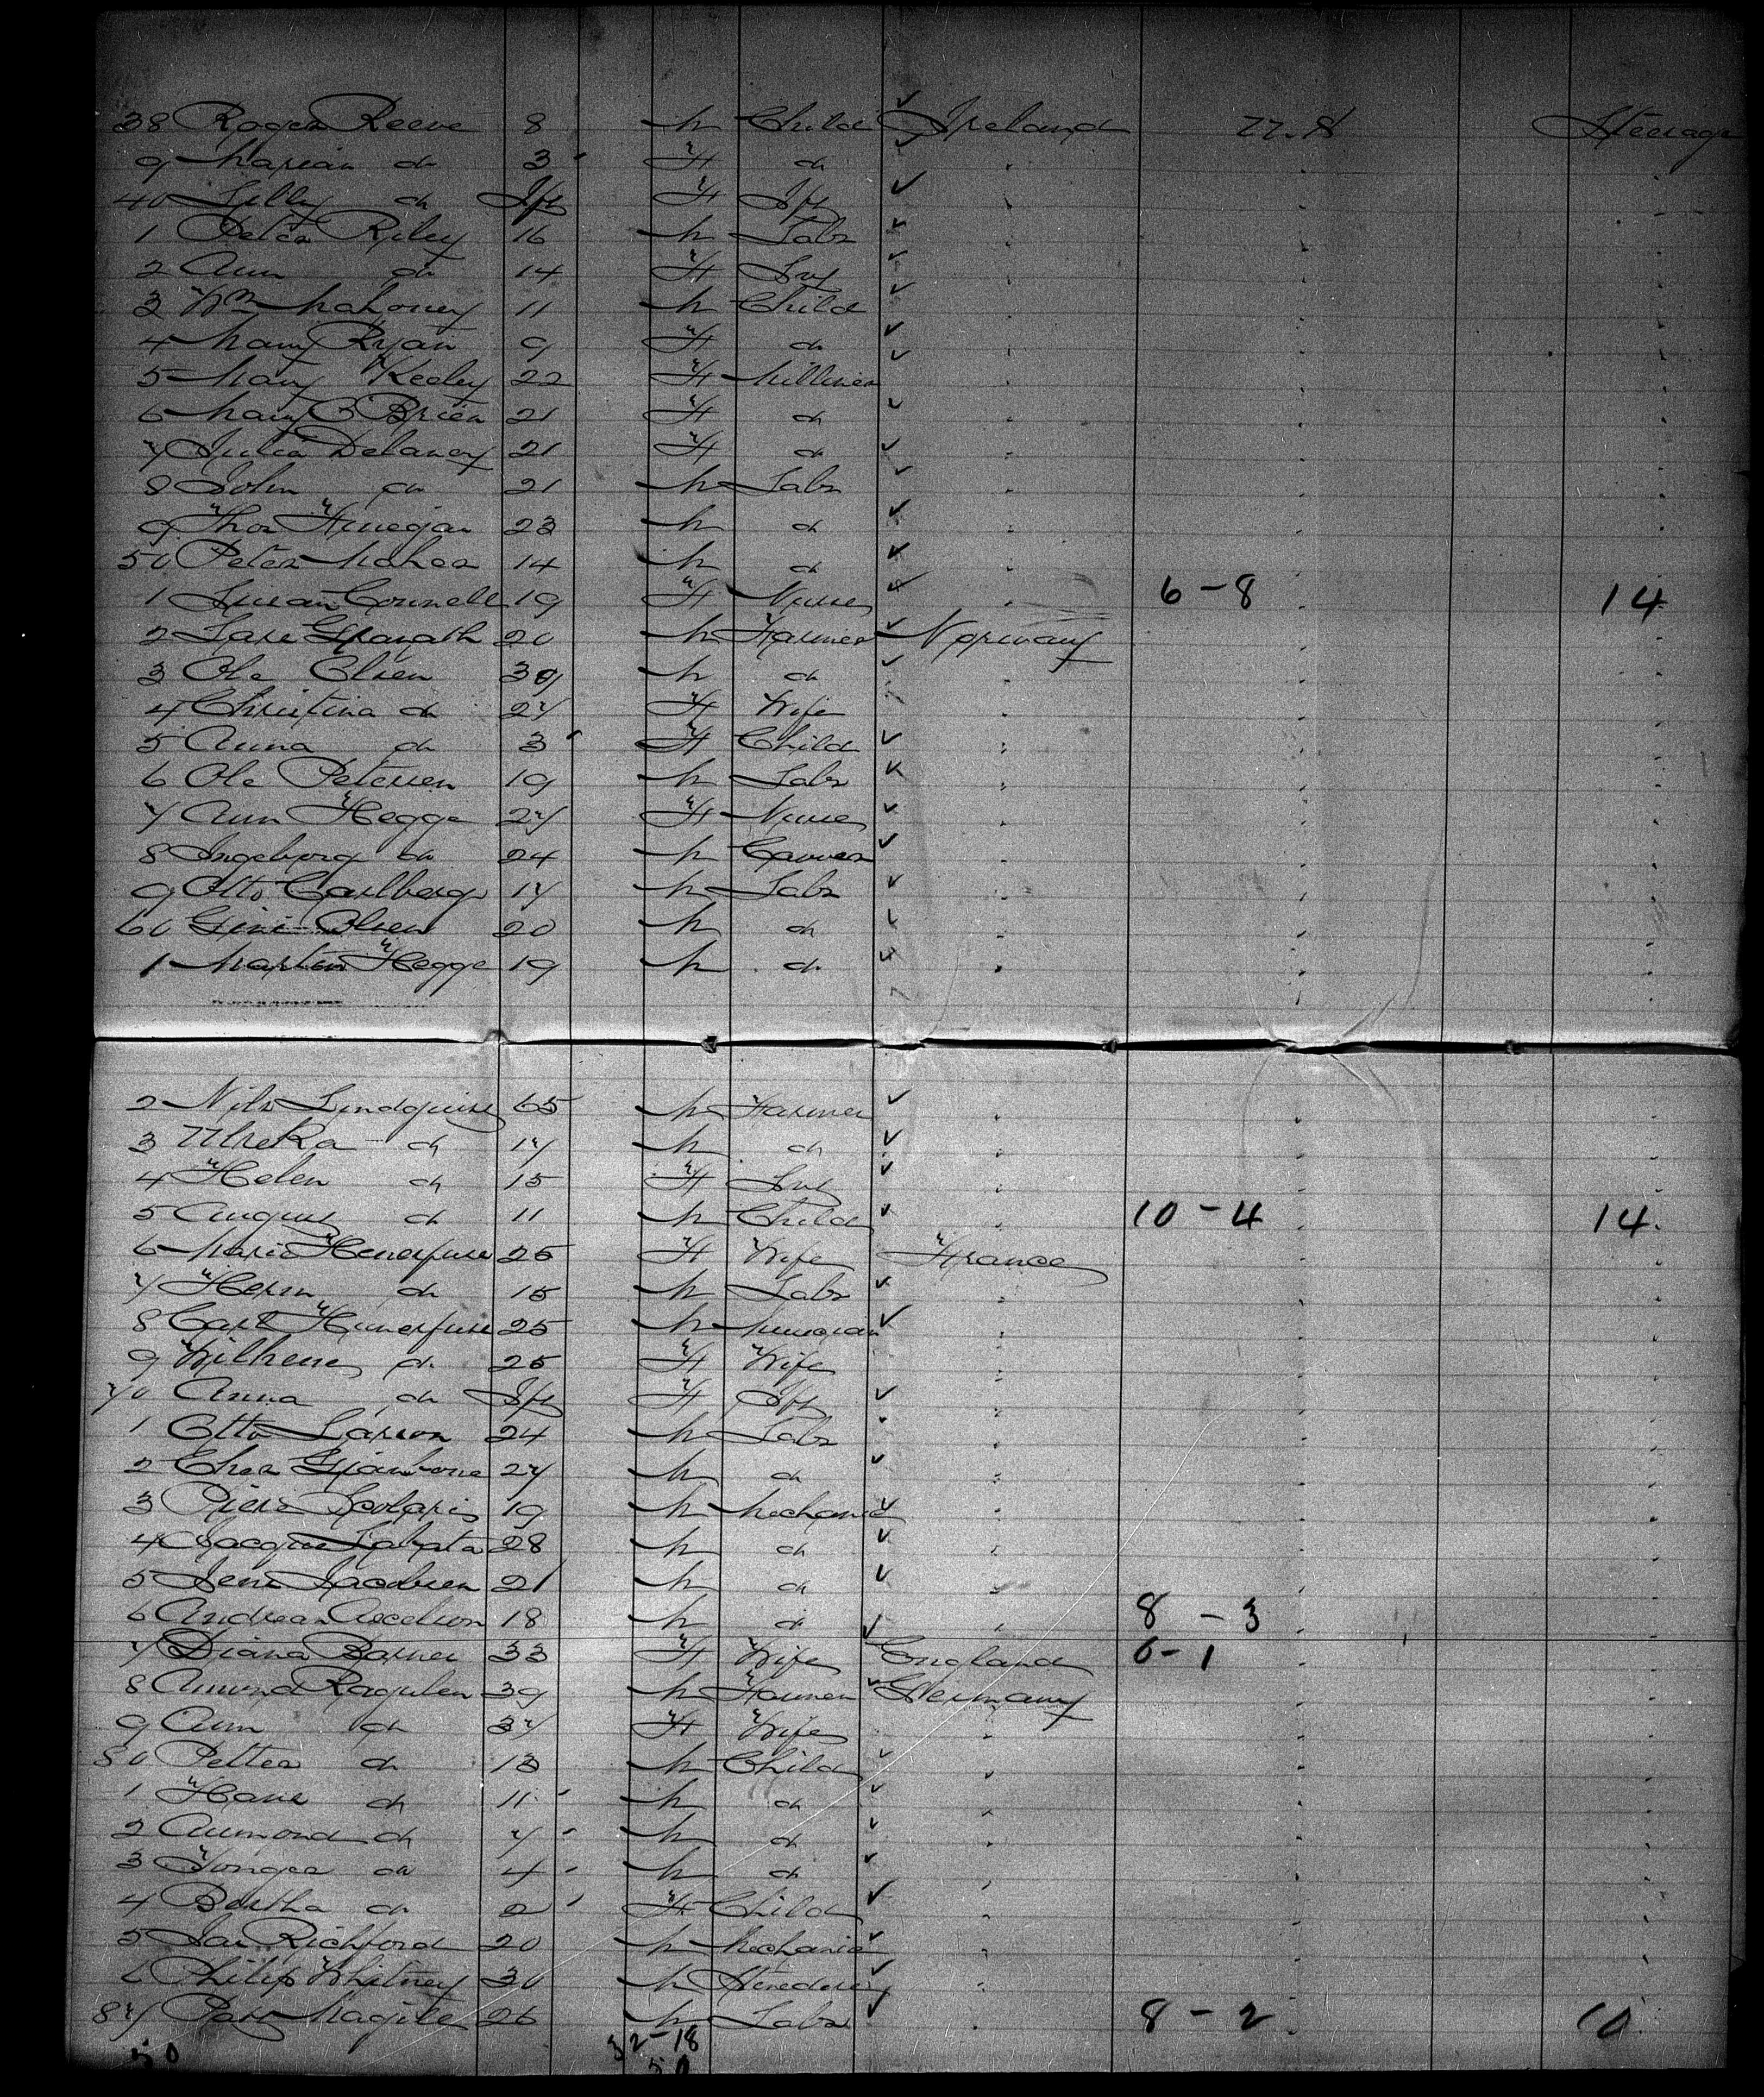 38 Roger Reeve 8 M Child Ireland U.S. Steerage
9 Marian do 3 F do "
40 Lilly do Inf F Inf "
1 Peter Riley 16 M Labr "
2 Ann do 14 F Svt "
3 Wm Mahoney 11 M Child "
4 Mary Ryan 9 F do "
5 Mary Keeley 22 F Milliner "
6 Mary O'Brien 21 F do "
7 Julia Delaney 21 F do "
8 John do 21 M Labr "
9 Thos Finegan 23 M do "
50 Peter Maher 14 M do "
1 Susan Connell 19 F Nurse " 6-8 14
2 Granath 20 M Farmer Norway
3 Ole Olsen 39 M do "
4 Christina do 27 F Wife "
5 Anna do 3 F Child "
6 Ole Petersen 19 M Labr "
7 Ann Hegge 27 F Nurse "
8 Ingeborg do 24 M "
9 Otto Carlberg 17 M Labr "
60 Olsen 20 M do "
1 Martin Hegge 19 M do "
2 Nils Lindquist 65 M Farmer "
3 do 17 M do "
4 Helen do 15 F Svt "
5 August do 11 M Child " 10-4 14
6 Marie 25 F Wife France
7 Herm do 15 M Labr "
8 Carl 25 M Musician "
9 do 25 F Wife "
70 Anna do Inf F Inf "
1 Otto Larson 24 M Labr "
2 27 M do "
3 19 M Mechanic "
4 28 M do "
5 Jens Jacobsen 21 M do "
6 Andreas 18 M do " 8-3
7 Diana Barnes 33 F Wife England 0-1
8 39 M Farmer Germany
9 Ann do 37 F Wife "
80 Petter do 13 M Child "
1 Hans do 11 M do "
2 do 7 M do "
3 do 4 M do "
4 Bertha do 2 F Child "
5 Richford 20 M Mechanic "
6 Philip Whitney 30 M Stevedore "
87 26 M Labr " 8-2 10
50 32-18
50